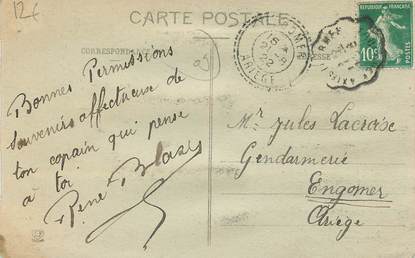 12€
CARTE POSTALE
CORRESPONDANCE
RÉPUBLIQUE FRANÇAISE
10c
POSTES
OMER
ARIÈGE
Bonnes Permissions
Souvenirs affectueux de
ton copain qui pense
à toi
René
Mr Jules Lacroise
Gendarmerie
Engomer
Ariège